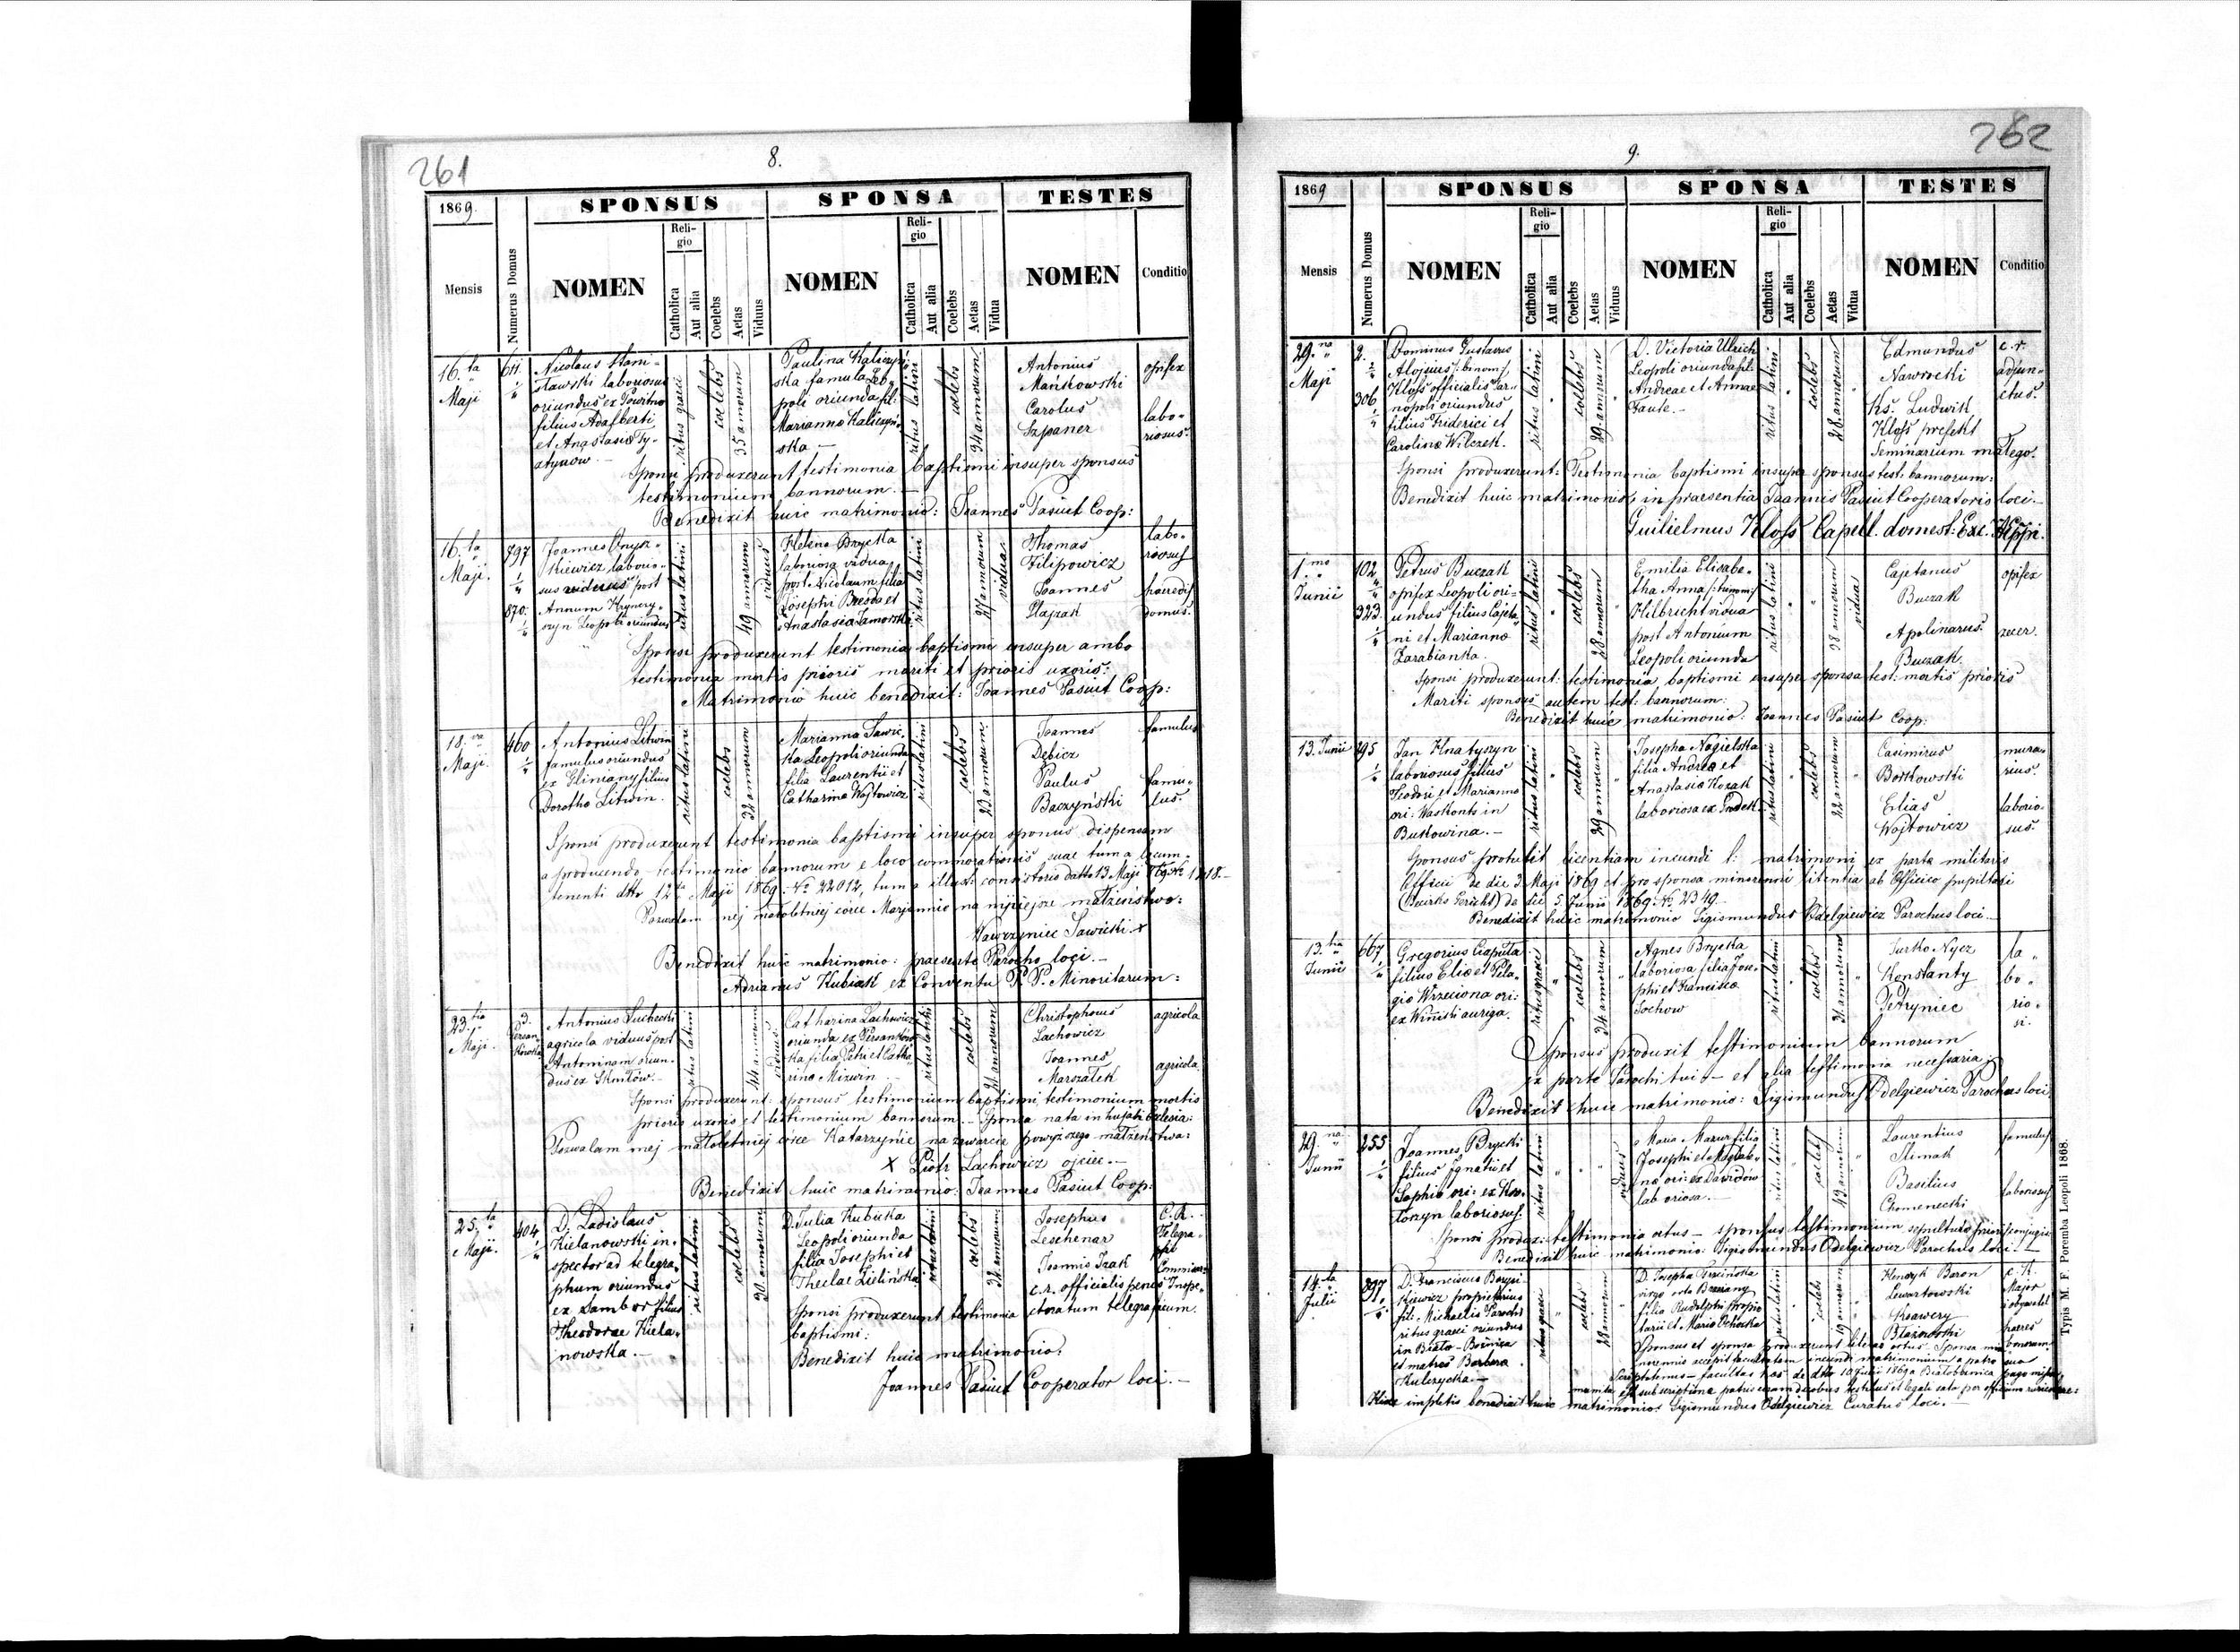 261
8.
1869.
SPONSUS
SPONSA
TESTES
Mensis
Numerus Domus
NOMEN
Religio
Catholica
Aut alia
Coelebs
Aetas
Viduus
NOMEN
Religio
Catholica
Aut alia
Coelebs
Aetas
Vidua
NOMEN
Conditio
16.ta
Maji
611.
Nicolaus Stani-
sławski laboriosus
oriundus ex
filius Adalberti
et Anastasia Ty-
atynow.
ritus graeci
coelebs
35 annorum
Paulina Kaliczyń-
ska famula Leo-
poli oriunda fil:
Marianna Kaliczyń-
ska
ritus latini
coelebs
34 annorum
Antonius
Mańkowski
Carolus
Szpaner
opifex
labo-
riosus.
Sponsi produxerunt testimonia baptismi insuper sponsus
testimonium bannorum.
Benedixit huic matrimonio: Joannes Pasiut Coop:
16.ta
Maji.
897
870.
Joannes Onysz-
kiewicz laborio-
sus viduus post
Annam
Leopoli oriundus
ritus latini
49 annorum
viduus
Helena Brycka
laboriosa vidua
post Nicolaum filia
Josephi et
Anastasia
ritus latini
47 annorum
vidua
Thomas
Filipowicz
Joannes
Płajzak
labo-
riosus
haeredis
domus.
Sponsi produxerunt testimonia baptismi insuper ambo
testimonia mortis prioris mariti et prioris uxoris.
Matrimonio huic benedixit: Joannes Pasiut Coop:
18.va
Maji.
460
Antonius Litwin
famulus oriundus
ex Gliniany filius
Dorotha Litwin.
ritus latini
coelebs
32 annorum
Marianna Sawic-
ka Leopoli oriunda
filia Laurentii et
Catharina Wojtowicz
ritus latini
coelebs
23 annorum
Joannes
Dębicz
Paulus
Baczyński
famulus
famu-
lus.
Sponsi produxerunt testimonia baptismi insuper sponsus dispensam
a producendo testimonio bannorum e loco commorationis suae tum a locum-
tenenti dtto 12 Maji 1869. No 22012, tum a illust: consistorio datto 13 Maji 869 No
nej małoletniej córce Marjannie na niniejsze małżeństwo:
Wawrzyniec Sawicki x
Benedixit huic matrimonio: praesente Parocho loci.
Adrianus Kubiak ex Conventu P. P. Minoritarum:
23.tia
Maji.
3.
Persen-
kówka
Antonius
agricola viduus post
Antoninam oriun-
dus ex
ritus latini
44 annorum
viduus
Catharina Lachowicz
oriunda ex Persenków-
ka filia Petri et Catha-
rina Mizwin
ritus latini
coelebs
21 annorum
Christophorus
Lachowicz
Joannes
Marszałek
agricola
agricola
Sponsi produxerunt: sponsus testimonium baptismi, testimonium mortis
prioris uxoris et testimonium bannorum. Sponsa nata in hujati Eclesia:
Pozwalam mej małoletniej córce Katarzynie na zawarcie powyższego małżeństwa:
X Piotr Lachowicz ojciec.
Benedixit huic matrimonio: Joannes Pasiut Coop:
25.ta
Maji.
404
D. Ladislaus
Kielanowski in-
spector ad telegra-
phum oriundus
ex Sambor filius
Theodorae Kiela-
nowska.
ritus latini
coelebs
30 annorum
D. Julia Kubicka
Leopoli oriunda
filia Josephi et
Theclae Zielińska
ritus latini
coelebs
34 annorum
Josephus
Leschenar
Joannis Izak
c.r. officialis penes Inspe-
ctoratum telegraficum.
C. R.
Telegra-
phi
Commissar
Sponsi produxerunt testimonia
baptismi:
Benedixit huic matrimonio:
Joannes Pasiut Cooperator loci.
262
9.
1869
SPONSUS
SPONSA
TESTES
Mensis
Numerus Domus
NOMEN
Religio
Catholica
Aut alia
Coelebs
Aetas
Viduus
NOMEN
Religio
Catholica
Aut alia
Coelebs
Aetas
Vidua
NOMEN
Conditio
29.na
Maji
2.
306
Dominus Gustavus
Alojsius /: binom:/
Kloss officialis Tar-
nopoli oriundus
filius Friderici et
Carolina Wilczek.
ritus latini
coelebs
29. annorum
D. Victoria Ulrich
Leopoli oriunda fil:
Andreae et Annae
Zaute.
ritus latini
coelebs
28. annorum
Edmundus
Nawrocki
Ks. Ludwik
Kloss prefekt
Seminarium małego.
c. r.
adjun-
ctus.
Sponsi produxerunt: Testimonia baptismi insuper sponsus test: bannorum:
Benedixit huic matrimonio, in praesentia Joannis Pasiut Cooperatoris loci.
Guilielmus Kloss Capell. domest: Exc. AEppi.
1.mo
Junii
102
323
Petrus Buczak
opifex Leopoli ori-
undus filius Cajeta-
ni et Marianna
Zarabianka.
ritus latini
coelebs
28 annorum
Emilia Elisabe-
tha Anna /: trinom:/
Hilbricht vidua
post Antonium
Leopoli oriunda
ritus latini
38 annorum
vidua
Cajetanus
Buczak
Apolinarus
Buczak
opifex
zecer.
Sponsi produxerunt: testimonia baptismi insuper sponsa test: mortis prioris
Mariti sponsus autem test: bannorum:
Benedixit huic matrimonio: Joannes Pasiut Coop:
13. Junii
295
Jan Hnatyszyn
laboriosus filius
Teodori et Marianna
ori: Waskonts in
Bukowina.
ritus latini
coelebs
29 annorum
Josepha Nagielska
filia Andrea et
Anastasia Kozak
laboriosa ex Grodek
ritus latini
coelebs
22 annorum
Casimirus
Borkowski
Elias
Wojtowicz
mura-
rius.
laborio-
sus.
Sponsus protulit licentiam ineundi l: matrimoni ex parte militaris
Officii de die 3 Maji 1869 et pro sponsa minorenni litentia ab Officio pupillari
(Bezirks Gericht) de die 5 Junii 1869. No 2349.
Benedixit huic matrimonio Sigismundus Odelgiewicz Parochus loci
13.tia
Junii
667
Gregorius Capuła
filius Elia et Pela-
gia Wrzeciona ori:
ex Winniki auriga.
ritus graeci
coelebs
34 annorum
Agnes Brycka
laboriosa filia Jose-
phi et Francisca
Sochow
ritus latini
coelebs
31 annorum
Jurko Nycz
Konstanty
Petryniec
la
bo
rio-
si.
Sponsus produxit testimonium bannorum
ex parte Parochi sui et alia testimonia necessaria
Benedixit huic matrimonio: Sigismundus Odelgiewicz Parochus loci
29.na
Junii
255
Joannes Brycki
filius Ignatii et
Sophia ori: ex
laboriosus.
ritus latini
viduus
Maria Mazur filia
Josephi et Magdale-
na ori: ex Dawidów
laboriosa.
ritus latini
coelebs
43 annorum
Laurentius
Slimak
Basilius
Chomenecki
famulus
laboriosus
Sponsi produx: testimonia ortus - sponsus testimonium sepultura prioris conjugis
Benedixit huic matrimonio: Sigismundus Odelgiewicz Parochus loci.
14.ta
Julii
897
D. Franciscus Borysi-
kiewicz proprietarius
fil: Michaelis Parochi
ritus graeci oriundus
in Biało-Boznica
et matris Barbara
Kulczycka.
ritus graeci
coelebs
28 annorum
D. Josepha
virgo orta Brzezany
filia Rudolphi propie-
tarii et Maria
ritus latini
coelebs
19 annorum
Henryk Baron
Lewartowski
Ksawery
c. K.
Major
i obywatel
haeres
bonorum
Sponsus et sponsa produxerunt literas ortus. Sponsa mi-
norennis accepit facultatem ineundi matrimonium a patre suo
facultas has de dtto 10 Julii 1869 a
subscriptione patris
Hisce impletis benedixit huic matrimonio: Sigismundus Odelgiewicz Curatus loci.
Typis M. F. Poremba Leopoli 1868.